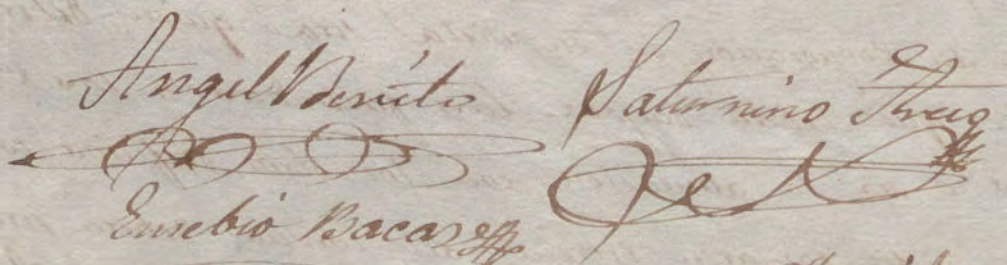 Angel Benito
Saturnino
Eusebio Bacas